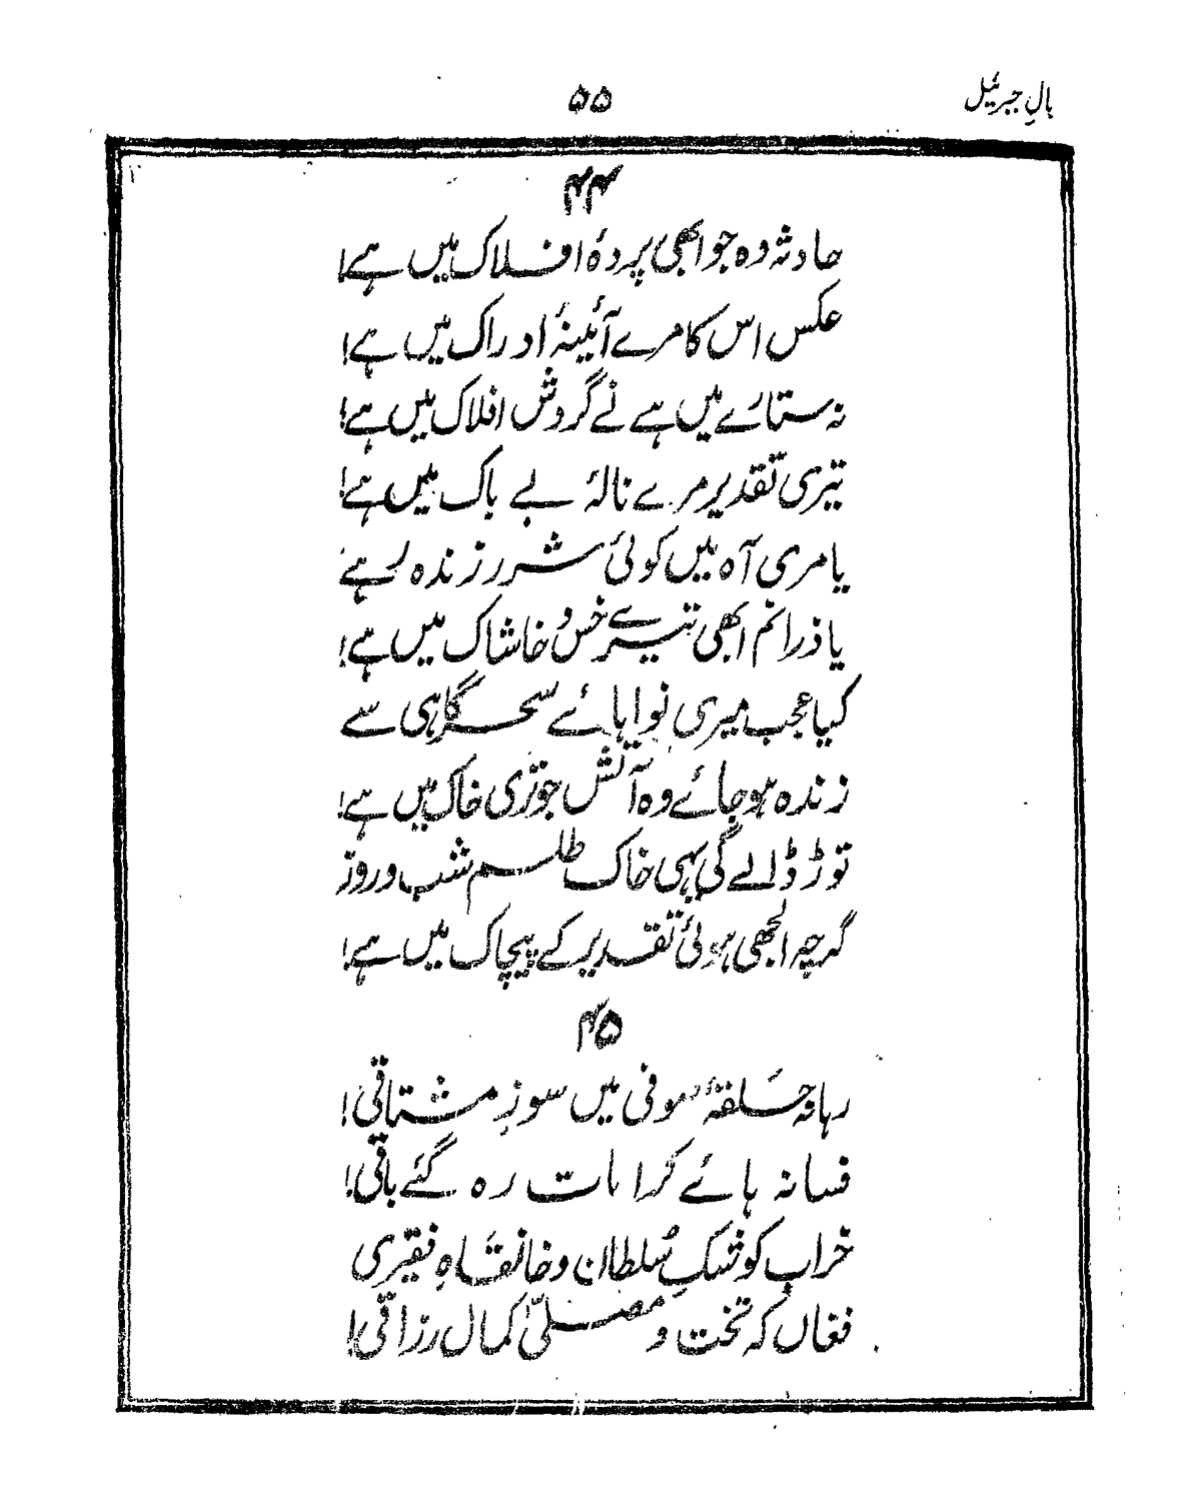 بالِ جبرئیل
۵۵
۴۴
حادثہ وہ جو ابھی پردۂ افلاک میں ہے!
عکس اس کا مرے آئینۂ ادراک میں ہے!
نہ ستارے میں ہے نے گردش افلاک میں ہے!
تیری تقدیر مرے نالۂ بے باک میں ہے!
یا مری آہ میں کوئی شرر زندہ نہیں
یا ذرا نم ابھی تیرے خس و خاشاک میں ہے!
کیا عجب میری نوا ہائے سحر گاہی سے
زندہ ہو جائے وہ آتش جو تری خاک میں ہے!
توڑ ڈالے گی یہی خاک طلسم شب و روز
گرچہ الجھی ہوئی تقدیر کے پیچاک میں ہے!
۴۵
رہا نہ حَلقۂ صوفی میں سوزِ مشتاقی!
فسانہ ہائے کرامات رہ گئے باقی!
خراب کوشکِ سُلطان و خانقَاہِ فقیری
فغاں کہ تخت و مصلّیٰ کمال رزاقی!